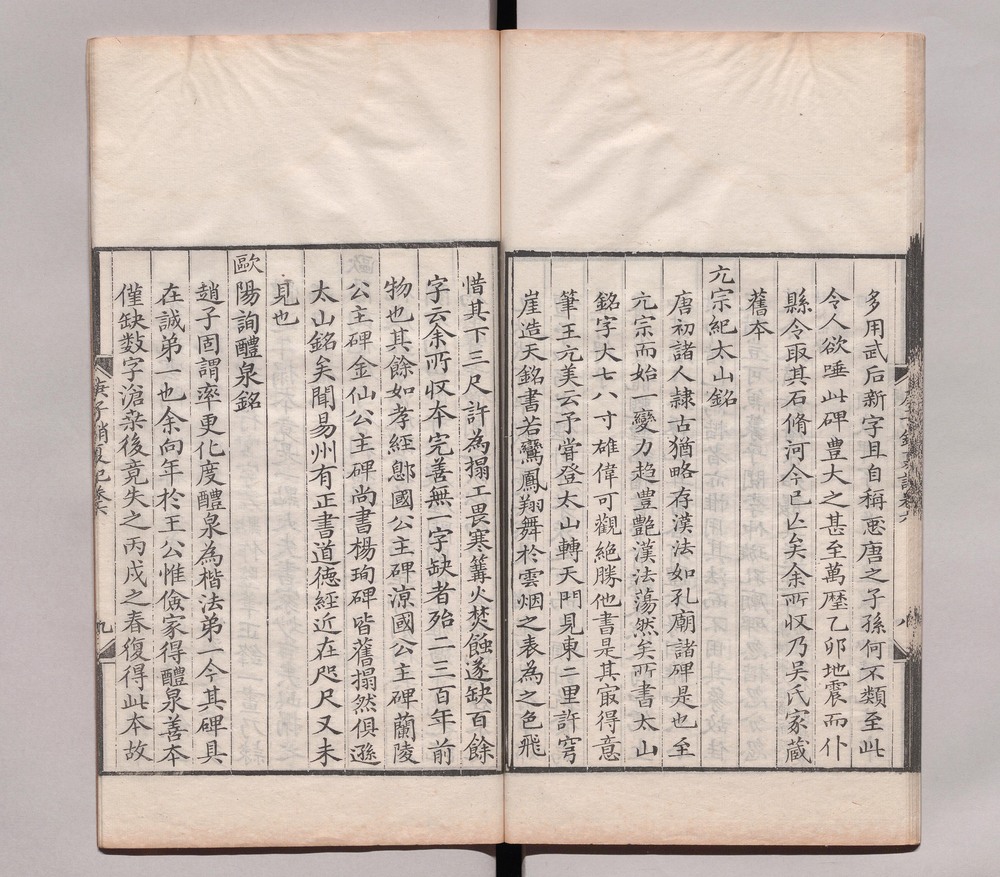 多用武后新字且自稱悪唐之子孫何不類至此
令人欲唾此碑豊大之甚至萬歴乙卯地震而仆
縣令取其石脩河今已亾矣余所収乃吴氏家蔵
舊本
元宗紀太山銘
唐初諸人隷古猶略存漢法如孔廟諸碑是也至
元宗而始一變力趋豊艶漢法蕩然矣所書太山
銘字大七八寸雄偉可觀絶勝他書是其㝡得意
筆王元美云予嘗登太山轉天門見東二里許穹
崖造天銘書若鸞鳳翔舞於雲烟之表為之色飛
惜其下三尺許為搨工畏寒篝火焚蝕遂缺百餘
字云余所収本完善無一字缺者殆二三百年前
物也其餘如孝經鄎國公主碑涼國公主碑蘭陵
公主碑金仙公主碑尚書楊珣碑皆舊搨然俱遜
太山銘矣聞易州有正書道徳經近在咫尺又未
見也
歐陽詢醴泉銘
趙子固謂率更化度醴泉為楷法弟一今其碑具
在誠弟一也余向年於王公惟儉家得醴泉善本
僅缺数字滄桒後竟失之丙戌之春復得此本故
庚子銷夏記卷六
九